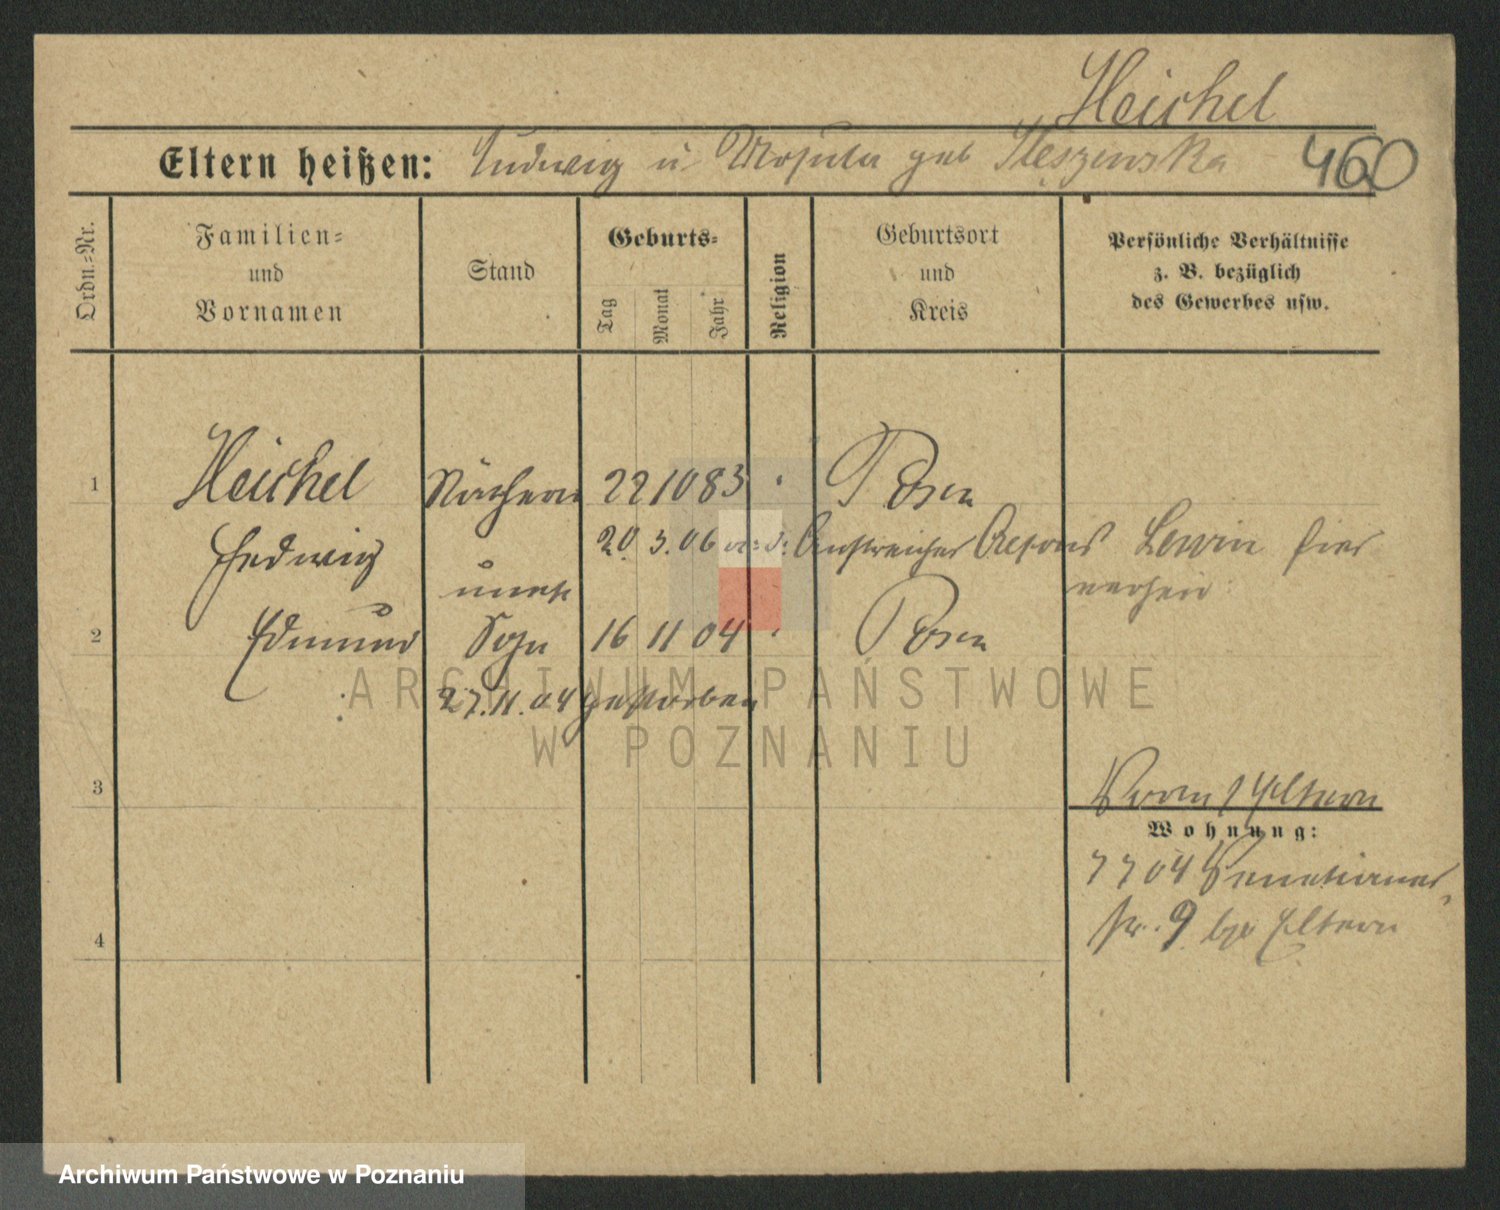 Heichel
Eltern heißen: Ludwig u Ursula geb 460
Ordn.-Nr.
Familien-
und
Vornamen
Stand
Geburts-
Tag
Monat
Jahr
Religion
Geburtsort
und
Kreis
Persönliche Verhältnisse
z. B. bezüglich
des Gewerbes usw.
1 Heichel Näherin 22 10 83 Posen
Hedwig 20. 3. 06 Anstreicher Lewin hier
unehe verheir.
2 Edmund Sohn 16 11 04 Posen
27.11.04 gestorben
3
Eltern
Wohnung:
7 7 04 Venetianer-
str. 9 bei Eltern
4
ARCHIWUM PAŃSTWOWE
W POZNANIU
Archiwum Państwowe w Poznaniu